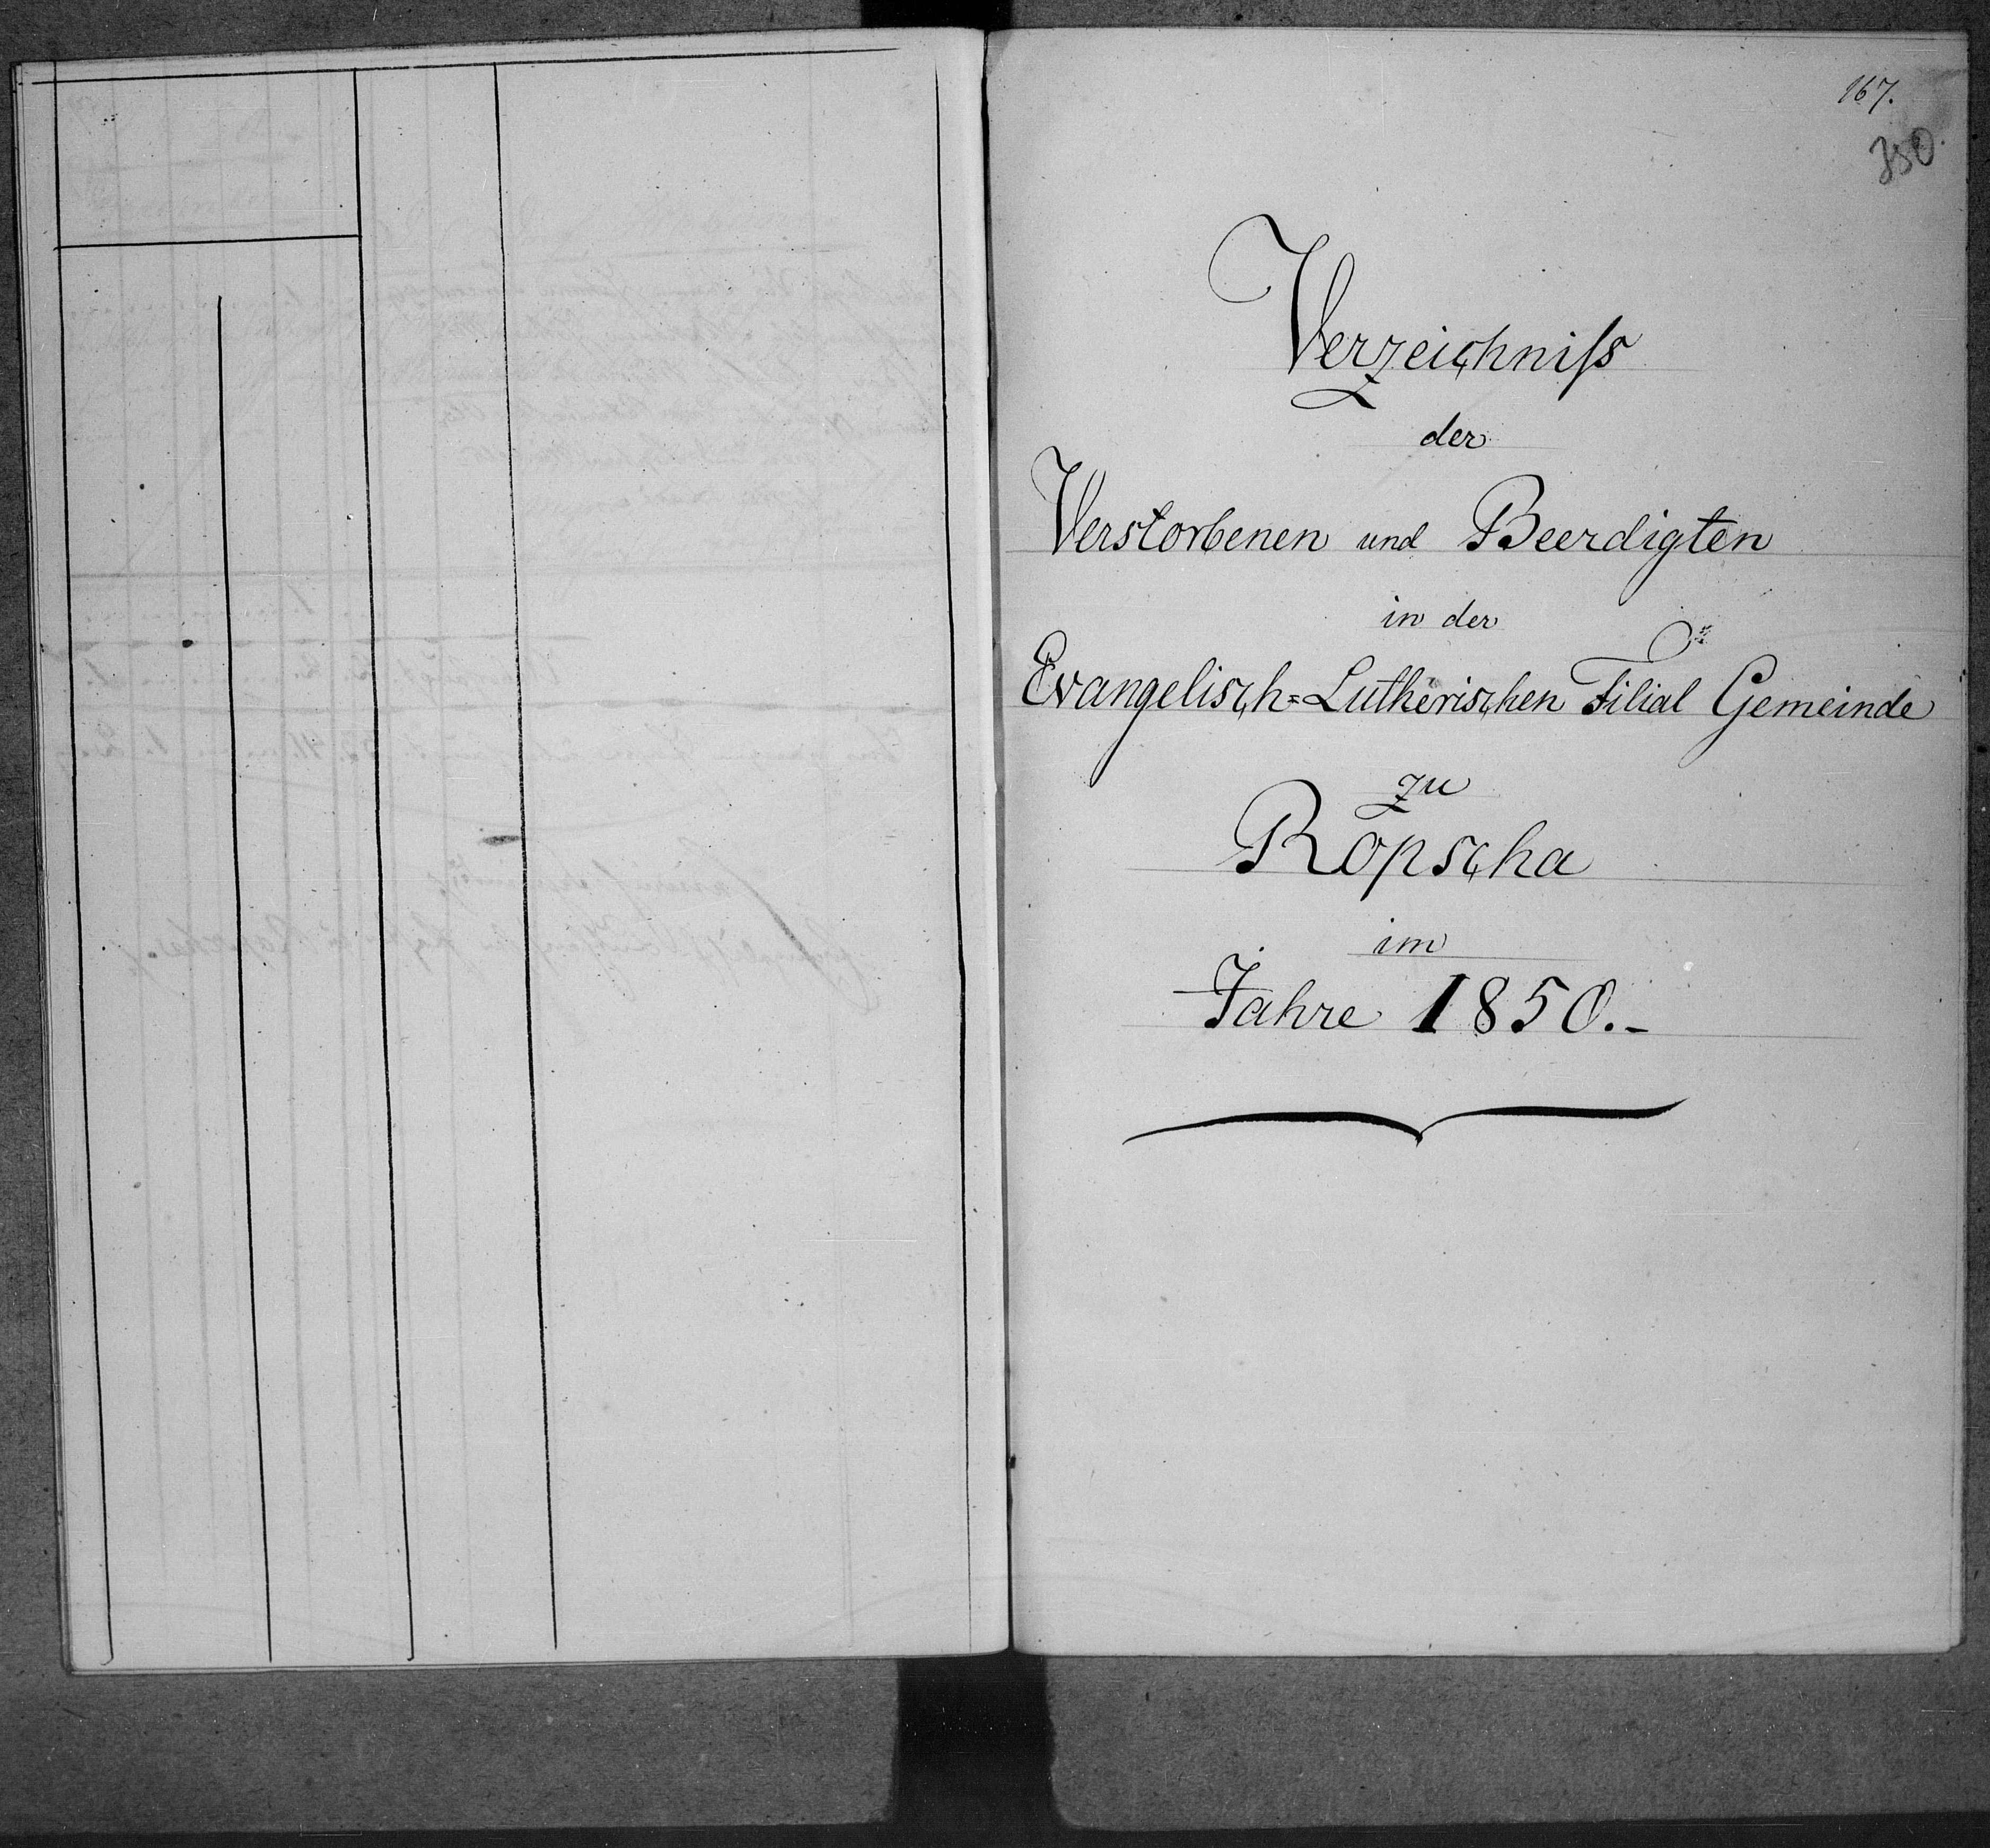 167.
350.
Verzeichniſs
der
Verstorbenen und Beerdigten
in der
Evangelisch=Lutherischen Filial Gemeinde
zu
Ropscha
im
Jahre 1850.-